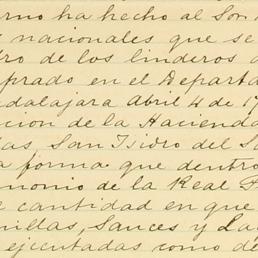 erno ha hecho al Son
nacionales que se
ro de los linderos
prado en el Departa
adalajara Abril 4 de 17
cion de la Hacienda
as, San Isidro del S
a forma que dentro
monio de la Real F
e cantidad en que
nillas, Sauces y La
ejecutadas como de